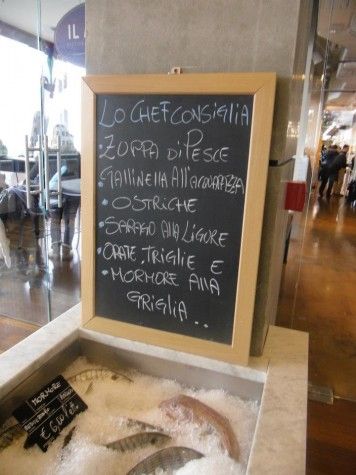 IL
LO CHEF CONSIGLIA
• ZUPPA DI PESCE
• GALLINELLA ALL'ACQUAPAZZA
• OSTRICHE
• SARAGO ALLA LIGURE
• ORATE, TRIGLIE E
• MORMORE ALLA
GRIGLIA..
MORMORE